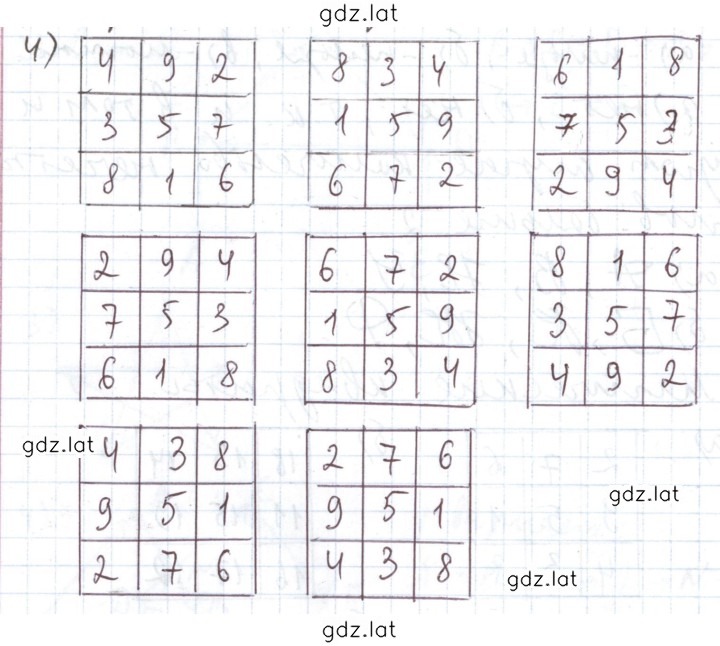 gdz.lat
4)
4 9 2
3 5 7
8 1 6
8 3 4
1 5 9
6 7 2
6 1 8
7 5 3
2 9 4
2 9 4
7 5 3
6 1 8
6 7 2
1 5 9
8 3 4
8 1 6
3 5 7
4 9 2
gdz.lat
4 3 8
9 5 1
2 7 6
2 7 6
9 5 1
4 3 8
gdz.lat
gdz.lat
gdz.lat